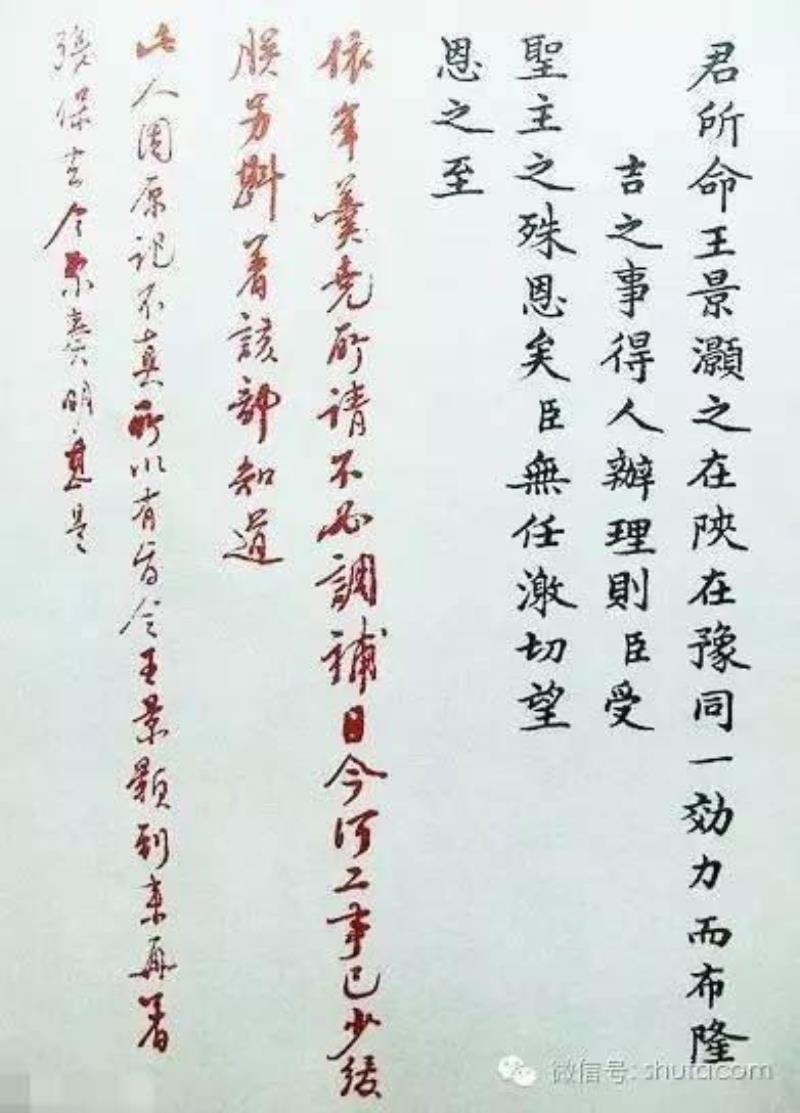 君所命王景灝之在陝在豫同一効力而布隆
吉之事得人辦理則臣受
聖主之殊恩矣臣無任激切望
恩之至
依年羹堯所請不必調補目今河工事已少緩
朕另斟着該部知道
此人因原記不真所以有旨令王景顥到來再著
張保去今奏明甚是
微信号: shufacom